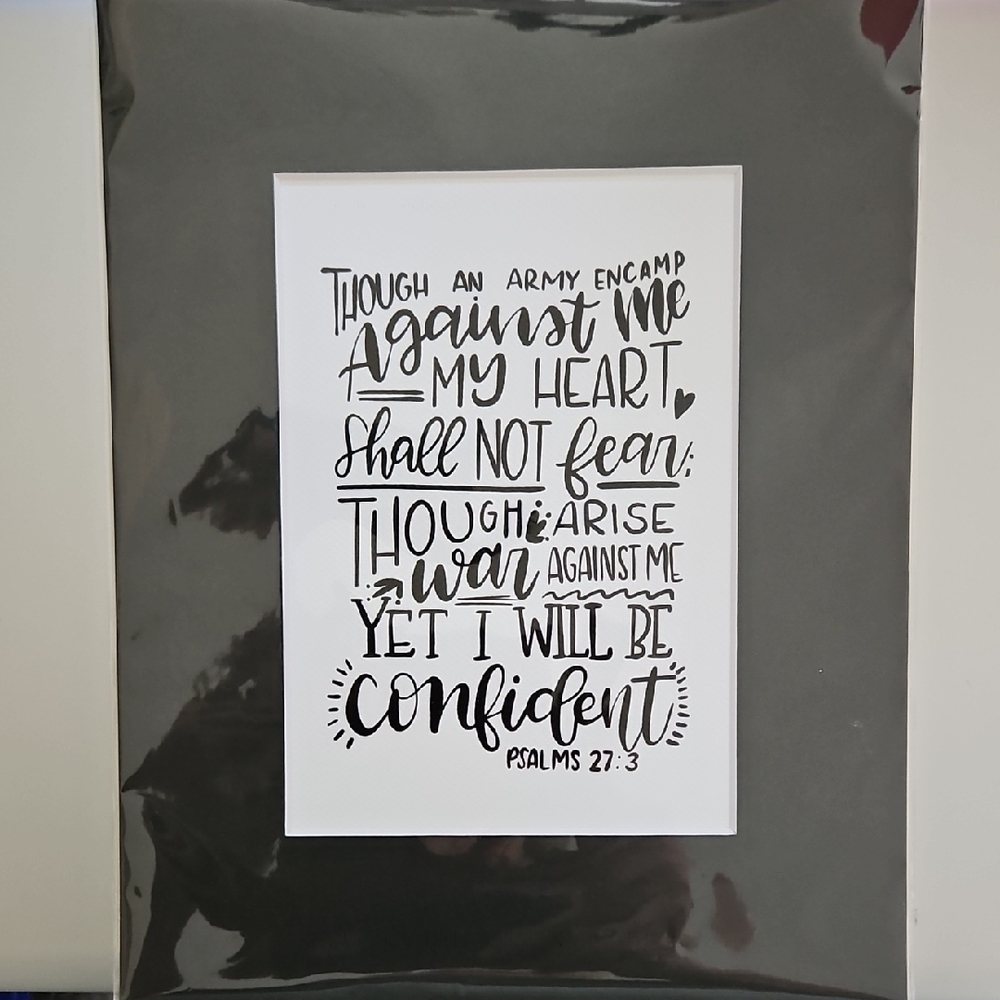 THOUGH AN ARMY ENCAMP
Against me
MY HEART
shall NOT fear:
THOUGH ARISE
war AGAINST ME
YET I WILL BE
confident
PSALMS 27:3